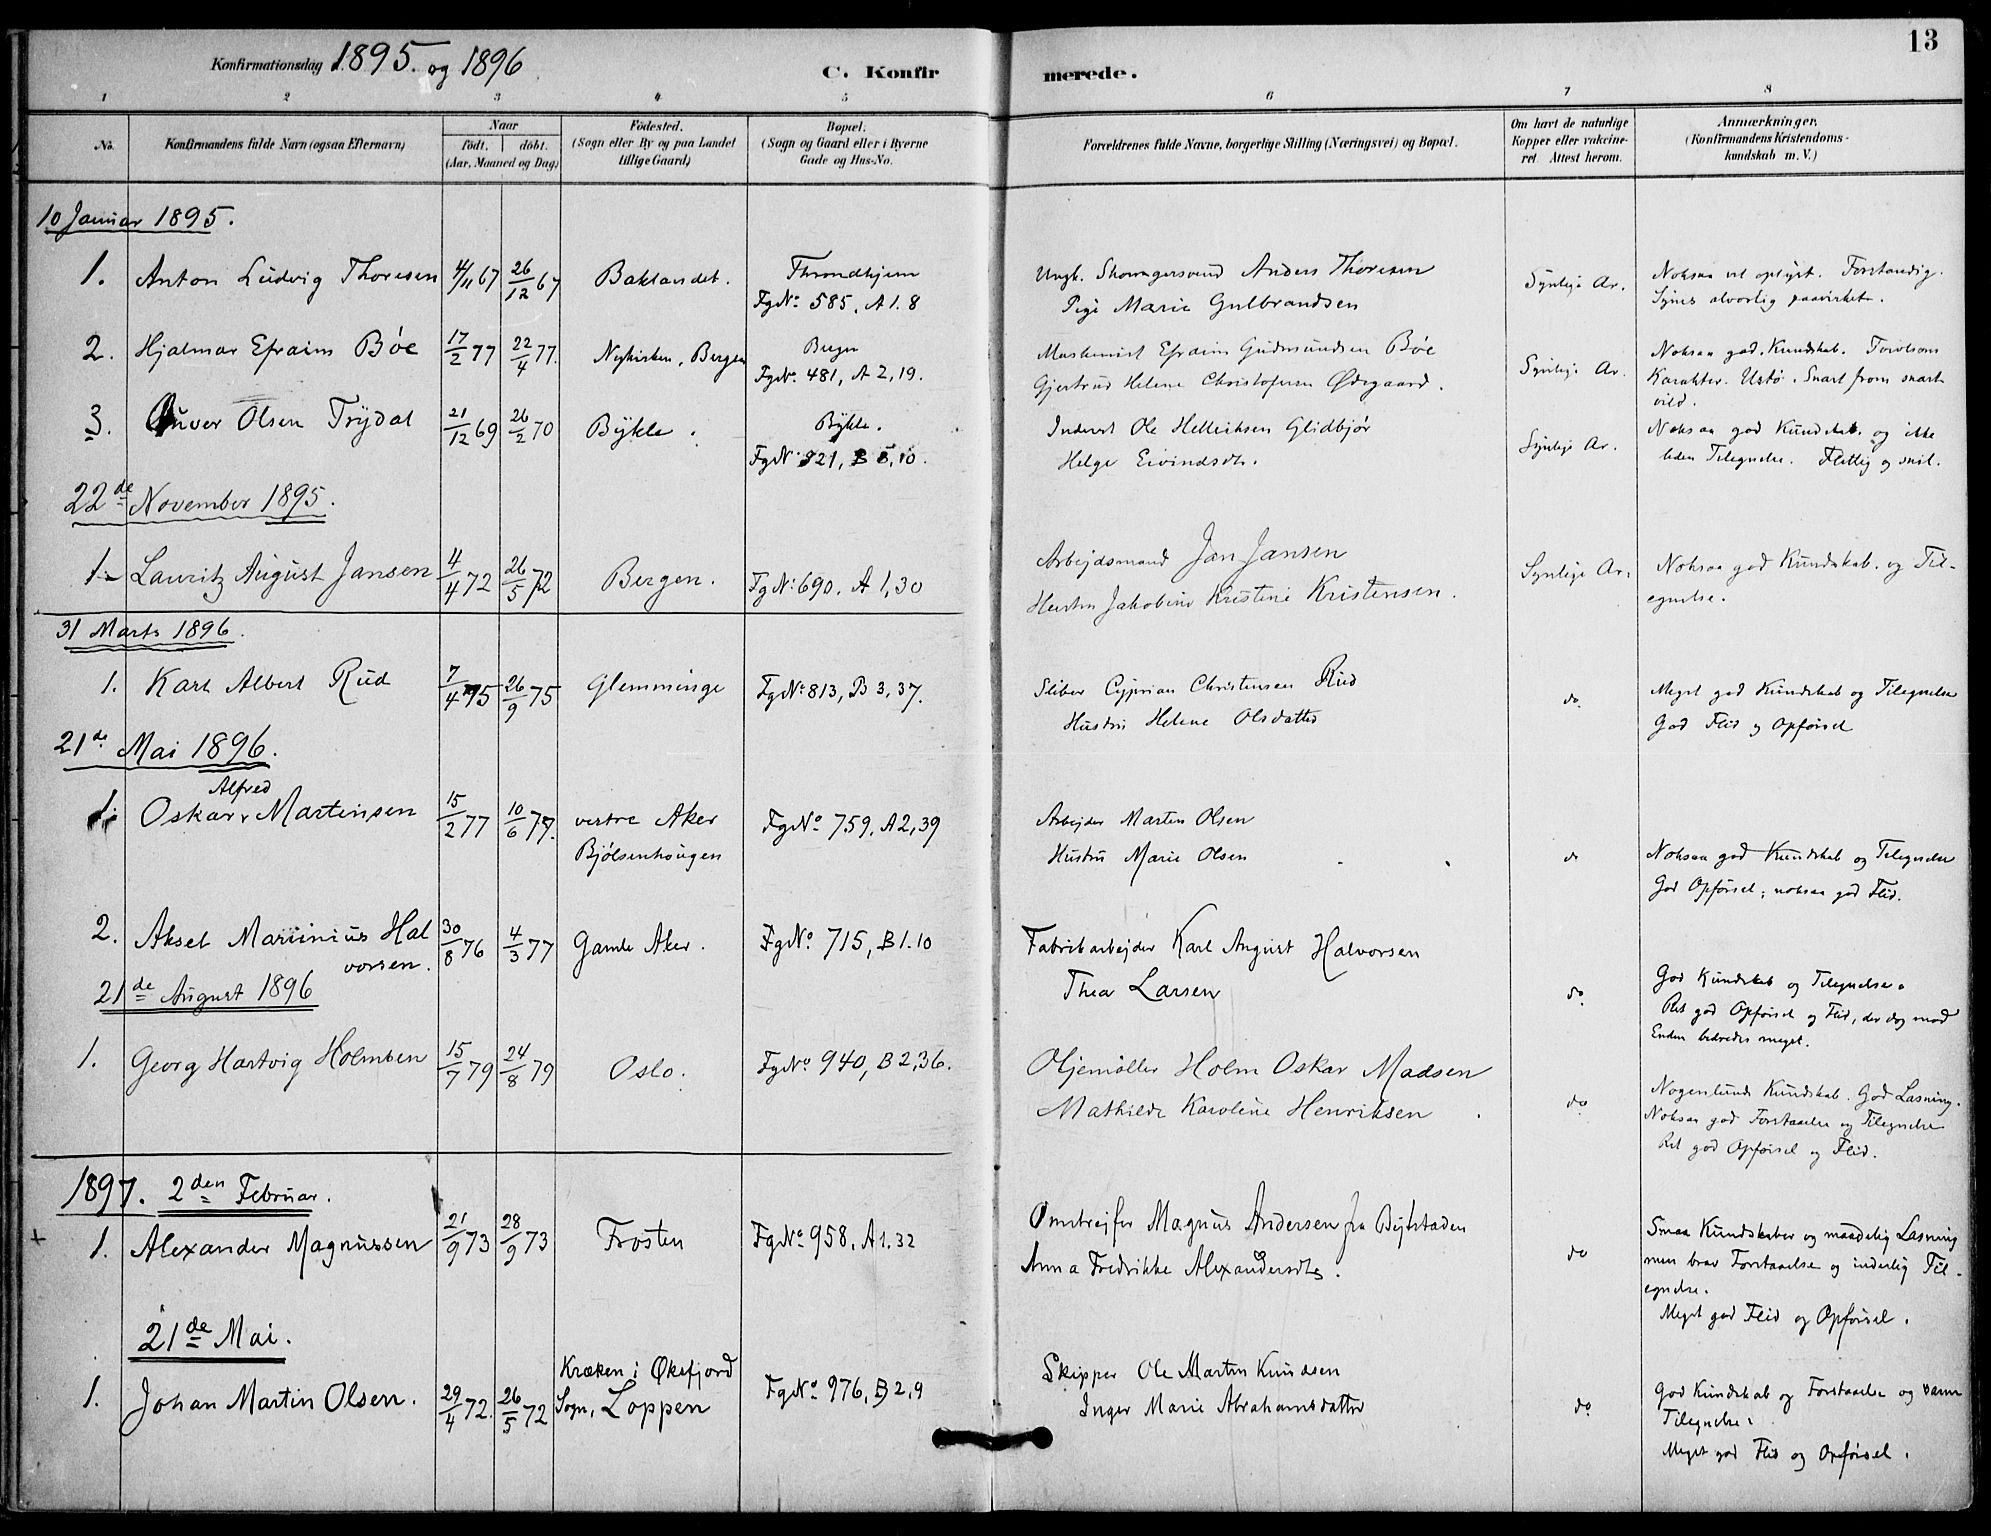 13
Konfirmationsdag 1895. og 1896
C. Konfirmerede.
1 2 3 4 5 6 7 8
No. Konfirmandens fulde Navn (ogsaa Efternavn) Naar født. døbt. (Aar, Maaned og Dag) Fødested. (Sogn eller By og paa Landet tillige Gaard) Bopæl. (Sogn og Gaard eller i Byerne Gade og Hus-No. Forældrenes fulde Navne, borgerlige Stilling (Næringsvei) og Bopæl. Om havt de naturlige Kopper eller vakcineret. Attest herom. Anmærkninger. (Konfirmandens Kristendomskundskab m. V.)
10 Januar 1895.
1. Anton Ludvig Thoresen 4/11 67 26/12 67 Baklandet. Throndhjem Ungk. Anders Thoresen Synlige Ar. Noksaa vel oplyst. Forstandig.
FgNo 585. A 1. 8 Pige Marie Gulbrandsen Synes alvorlig paavirket.
2. Hjalmar Efraim Bøe 17/2 77 22/4 77. Nykirken, Bergen Bergen Maskinist Efraim Gudmundsen Bøe Synlige Ar. Noksaa god Kundskab.
FgNo. 481, A 2, 19. Gjertrud Helene Christofersen Ødegaard. Karakter. Ustø. Snart from snart
vild.
3. Olsen Trydal 21/12 69 26/2 70 Bykle. Bykle. Inderst Ole Helleriksen Glidbjør Synlige Ar. Noksaa god Kundskab. og ikke
FgNo. 821, B 5, 10. Helge Eivindsdt. liden Tilegnelse. Flittig og snil.
22de November 1895.
1. Lauritz August Jansen 4/4 72 26/5 72 Bergen. FgNo: 690. A 1, 30 Arbejdsmand Jan Jansen Synlige Ar. Noksaa god Kundskab. og Til-
Hustru Jakobine Kristine Kristensen. egnelse.
31 Marts 1896.
1. Karl Albert Rud 7/4 75 26/9 75 Glemminge FgNo: 813, B 3, 37. Sliber Cyprian Christensen Rud do. Meget god Kundskab og Tilegnelse
Hustru Helene Olsdatter God Flid og Opførsel
21de Mai 1896.
Alfred
1. Oskar Martinsen 15/2 77 10/6 77. vestre Aker FgNo 759. A 2, 39 Arbejder Martin Olsen
Bjølsenhougen Hustru Marie Olsen do Noksaa god Kundskab og Tilegnelse
God Opførsel; noksaa god Flid.
2. Aksel Marinius Hal 30/8 76 4/3 77 Gamle Aker. FgNo 715, B 1. 10 Fabrikarbejder Karl August Halvorsen
vorsen. Thea Larsen do God Kundskab og Tilegnelse.
Ret god Opførsel og Flid, der dog mod
Enden bedredes meget.
21de August 1896
1. Georg Hartvig Holmsen 15/7 79 24/8 79 Oslo. FgNo. 940, B 2, 36. Oljemøller Holm Oskar Madsen
Mathilde Karoline Henriksen. do Nogenlunde Kundskab. God Læsning.
Noksaa god Forstaaelse og Tilegnelse
Ret god Opførsel og Flid.
1897. 2den Februar.
1. Alexander Magnussen 21/9 73 28/9 73 Frosten FgNo. 958. A 1. 32 Omstrejfer Magnus Andersen fra Beitstaden
Anna Fredrikke Alexandersdt. do Smaa Kundskaber og maadelig Læsning
men brav Forstaaelse og inderlig Til-
egnelse.
Meget god Flid og Opførsel.
21de Mai.
1. Johan Martin Olsen. 29/4 72. 26/5 72 Kræken i Øksfjord FgNo 976, B 2, 9 Skipper Ole Martin Knudsen
Sogn, Loppen Inger Marie Abrahamsdatter do God Kundskab og Forstaaelse og varm
Tilegnelse.
Meget god Flid og Opførsel.